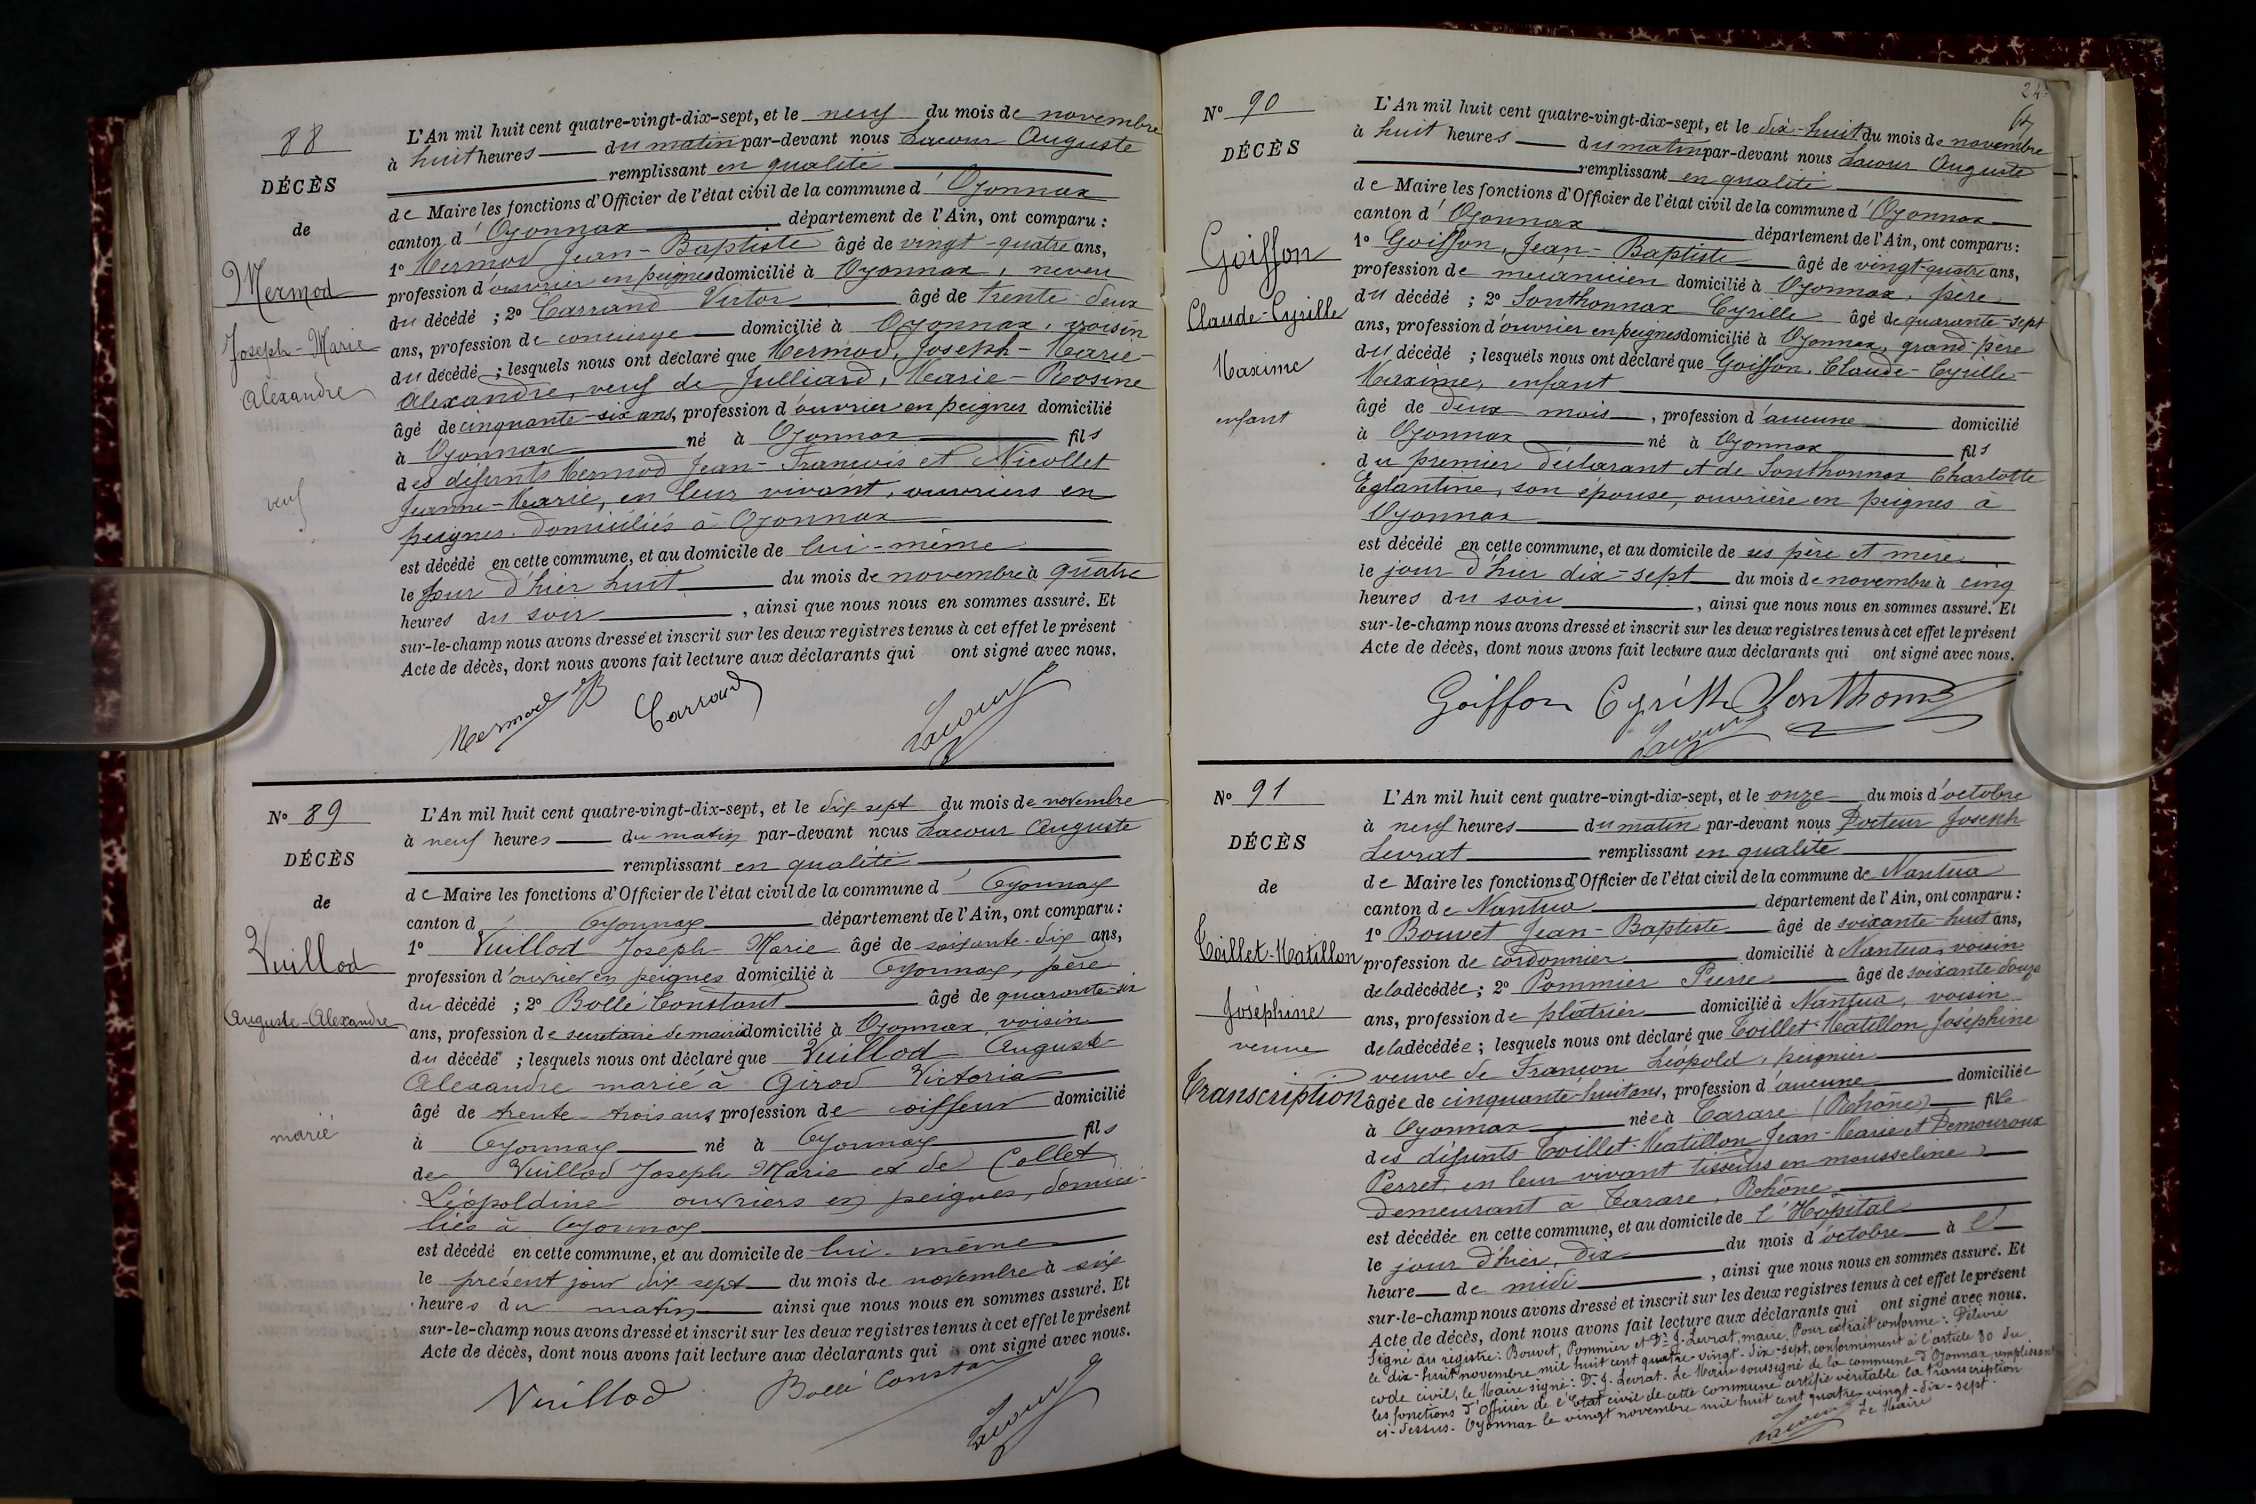 88
DÉCÈS
de
Mermod
Joseph-Marie
Alexandre
veuf
L'An mil huit cent quatre-vingt-dix-sept, et le neuf du mois de novembre
à huit heures du matin par-devant nous Lacour Auguste
remplissant en qualité
de Maire les fonctions d'Officier de l'état civil de la commune d'Oyonnax
canton d'Oyonnax département de l'Ain, ont comparu :
1º Mermod Jean-Baptiste âgé de vingt-quatre ans,
profession d'ouvrier en peignes domicilié à Oyonnax, neveu
du décédé ; 2º Carrand Victor âgé de trente-deux
ans, profession de concierge domicilié à Oyonnax, voisin
du décédé ; lesquels nous ont déclaré que Mermod, Joseph-Marie-
Alexandre, veuf de Julliard, Marie-Rosine
âgé de cinquante-six ans, profession d'ouvrier en peignes domicilié
à Oyonnax né à Oyonnax fils
des défunts Mermod Jean-François et Nicollet
Jeanne-Marie, en leur vivant, ouvriers en
peignes domiciliés à Oyonnax
est décédé en cette commune, et au domicile de lui-même
le jour d'hier huit du mois de novembre à quatre
heures du soir, ainsi que nous nous en sommes assuré. Et
sur-le-champ nous avons dressé et inscrit sur les deux registres tenus à cet effet le présent
Acte de décès, dont nous avons fait lecture aux déclarants qui ont signé avec nous.
Mermod JB Carrand Lacour
Nº 89
DÉCÈS
de
Vuillod
Auguste-Alexandre
marié
L'An mil huit cent quatre-vingt-dix-sept, et le dix sept du mois de novembre
à neuf heures du matin par-devant nous Lacour Auguste
remplissant en qualité
de Maire les fonctions d'Officier de l'état civil de la commune d'Oyonnax
canton d'Oyonnax département de l'Ain, ont comparu :
1º Vuillod Joseph-Marie âgé de soixante-dix ans,
profession d'ouvrier en peignes domicilié à Oyonnax, père
du décédé ; 2º Bollé Constant âgé de quarante-six
ans, profession de secrétaire de mairie domicilié à Oyonnax voisin
du décédé ; lesquels nous ont déclaré que Vuillod Auguste
Alexandre marié à Girod Victoria
âgé de trente-trois ans, profession de coiffeur domicilié
à Oyonnax né à Oyonnax fils
de Vuillod Joseph Marie et de Collet
Léopoldine ouvriers en peignes, domici-
liés à Oyonnax
est décédé en cette commune, et au domicile de lui-même
le présent jour dix sept du mois de novembre à six
heures du matin ainsi que nous nous en sommes assuré. Et
sur-le-champ nous avons dressé et inscrit sur les deux registres tenus à cet effet le présent
Acte de décès, dont nous avons fait lecture aux déclarants qui ont signé avec nous.
Vuillod Bollé Constant Lacour
24
Nº 90
DÉCÈS
Goiffon
Claude-Cyrille
Maxime
enfant
L'An mil huit cent quatre-vingt-dix-sept, et le dix-huit du mois de novembre
à huit heures du matin par-devant nous Lacour Auguste
remplissant en qualité
de Maire les fonctions d'Officier de l'état civil de la commune d'Oyonnax
canton d'Oyonnax département de l'Ain, ont comparu :
1º Goiffon, Jean-Baptiste âgé de vingt-quatre ans,
profession de mécanicien domicilié à Oyonnax, père
du décédé ; 2º Sonthonnax Cyrille âgé de quarante-sept
ans, profession d'ouvrier en peignes domicilié à Oyonnax, grand-père
du décédé ; lesquels nous ont déclaré que Goiffon, Claude-Cyrille-
Maxime, enfant
âgé de deux mois, profession d'aucune domicilié
à Oyonnax né à Oyonnax fils
du premier déclarant et de Sonthonnax Charlotte
Eglantine, son épouse, ouvrière en peignes à
Oyonnax
est décédé en cette commune, et au domicile de ses père et mère
le jour d'hier dix-sept du mois de novembre à cinq
heures du soir, ainsi que nous nous en sommes assuré. Et
sur-le-champ nous avons dressé et inscrit sur les deux registres tenus à cet effet le présent
Acte de décès, dont nous avons fait lecture aux déclarants qui ont signé avec nous.
Goiffon Cyrille Sonthonnax
Lacour
Nº 91
DÉCÈS
de
Toillet-Matillon
Joséphine
veuve
Transcription
L'An mil huit cent quatre-vingt-dix-sept, et le onze du mois d'octobre
à neuf heures du matin par-devant nous Docteur Joseph
Levrat remplissant en qualité
de Maire les fonctions d'Officier de l'état civil de la commune de Nantua
canton de Nantua département de l'Ain, ont comparu :
1º Bouvet Jean-Baptiste âgé de soixante-huit ans,
profession de cordonnier domicilié à Nantua, voisin
de la décédée ; 2º Pommier Pierre âgé de soixante douze
ans, profession de plâtrier domicilié à Nantua, voisin
de la décédée ; lesquels nous ont déclaré que Toillet-Matillon Joséphine
veuve de Françon Léopold, peignier
âgée de cinquante-huit ans, profession d'aucune domiciliée
à Oyonnax née à Tarare (Rhône) fille
des défunts Toillet-Matillon Jean-Marie et Demouroux
Perret, en leur vivant tisseurs en mousseline
demeurant à Tarare, Rhône
est décédée en cette commune, et au domicile de l'Hôpital
le jour d'hier, dix du mois d'octobre à l'
heure de midi, ainsi que nous nous en sommes assuré. Et
sur-le-champ nous avons dressé et inscrit sur les deux registres tenus à cet effet le présent
Acte de décès, dont nous avons fait lecture aux déclarants qui ont signé avec nous.
Signé au registre : Bouvet, Pommier et Dr J. Levrat, maire. Pour extrait conforme : Délivré
le dix-huit novembre mil huit cent quatre-vingt-dix-sept, conformément à l'article 80 du
code civil, le Maire signé : Dr J. Levrat. Le Maire soussigné de la commune d'Oyonnax, remplissant
les fonctions d'Officier de l'Etat civil de cette commune certifie véritable la transcription
ci-dessus. Oyonnax le vingt novembre mil huit cent quatre-vingt-dix-sept.
Le Maire
Lacour